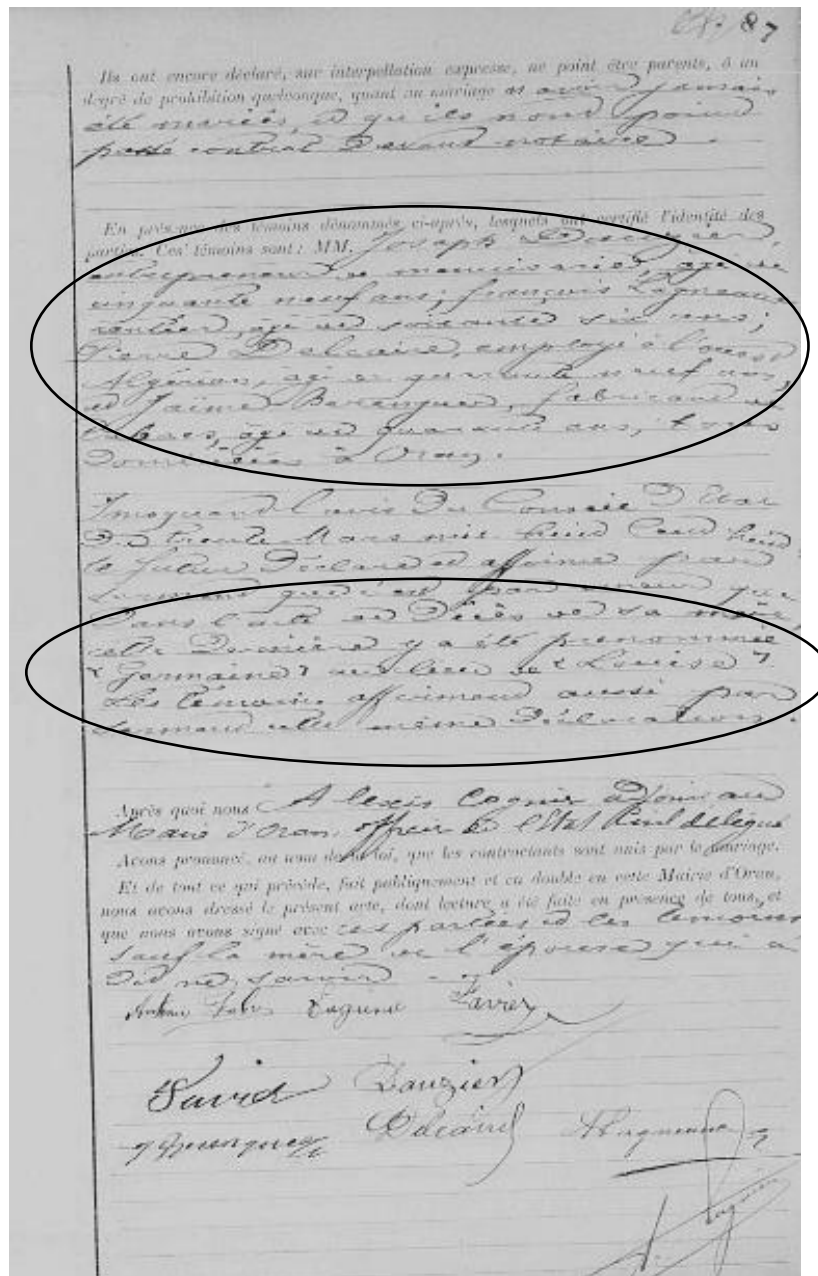 87
Ils ont encore déclaré, sur interpellation expresse, ne point être parents, à un
degré de prohibition quelconque, quant au mariage et avoir jamais
été mariés, et qu'ils n'ont point
passé contrat devant notaire.
En présence des témoins dénommés ci-après, lesquels ont certifié l'identité des
parties. Ces témoins sont : MM. Joseph Dauzier,
entrepreneur de menuiserie, âgé de
cinquante neuf ans; François Lagneau
rentier, âgé de soixante six ans;
Pierre Delcaire, employé à l'ouest
Algérien, âgé de quarante neuf ans,
et Jaime Berenguer, fabricant de
tabacs, âgé de quarante ans, tous
domiciliés à Oran.
Invoquant l'avis du Conseil d'Etat
du trente Mars mil huit cent huit
le futur déclare et affirme par
serment que c'est par erreur que
dans l'acte de décès de sa mère,
cette dernière y a été prénommée
"Germaine" au lieu de "Louise"
Les témoins affirment aussi par
serment cette même déclaration.
Après quoi nous Alexis Cognier adjoint au
Maire d'Oran, officier de l'Etat Civil délégué
Avons prononcé, au nom de la loi, que les contractants sont unis par le mariage.
Et de tout ce qui précède, fait publiquement et en double en cette Mairie d'Oran,
nous avons dressé le présent acte, dont lecture a été faite en présence de tous, et
que nous avons signé avec les parties et les témoins
sauf la mère de l'épouse qui a
dit ne savoir
Xavier
David Dauzier
J Berenguer Delcaire Lagneau